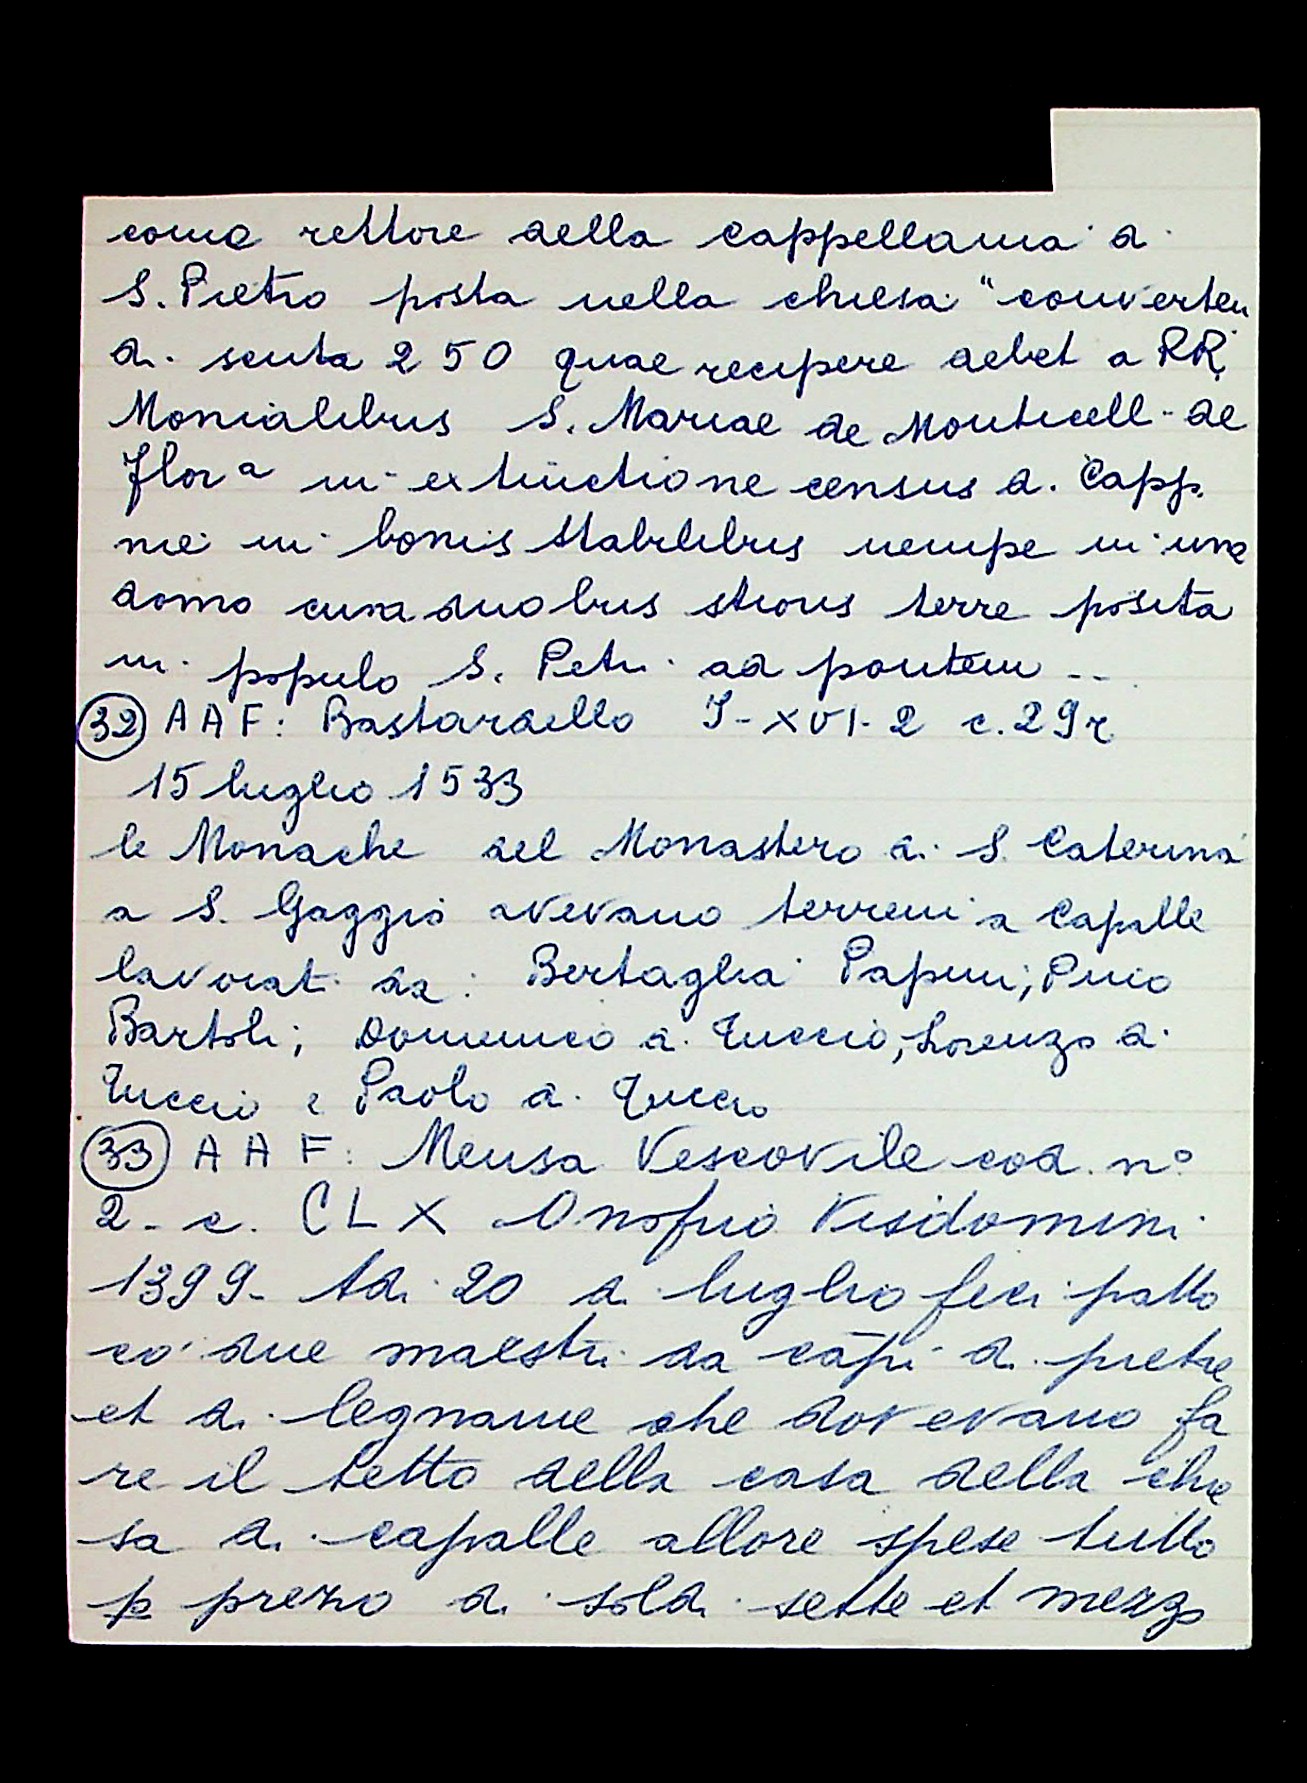 come rettore della cappellania di
S. Pietro posta nella chiesa "converten
di scuta 250 quae recipere debet a RR.
Monialibus S. Mariae de Monticell- de
Flor.a in extinctione census d. Capp.
nei in bonis stabilibus nempe in una
domo cum duobus stioris terre posita
in populo S. Petri ad pontem --
32 AAF: Bastardello I-XVI-2 c.29r
15 luglio 1533
le Monache del Monastero di S. Caterina
a S. Gaggio avevano terreni a Capalle
lavorati da: Bertaglia Papini; Piero
Bartoli; Domenico di Tuccio, Lorenzo di
Tuccio e Paolo di Tuccio
33 AAF: Mensa Vescovile cod. n°
2- c. CLX Onofrio Visidomini
1399- Adi 20 di luglio feci patto
co' due maestri da cāpi di pietre
et di legname che dovevano fa
re il tetto della casa della chie
sa di capalle allore spese tutto
p prezzo di soldi sette et mezzo